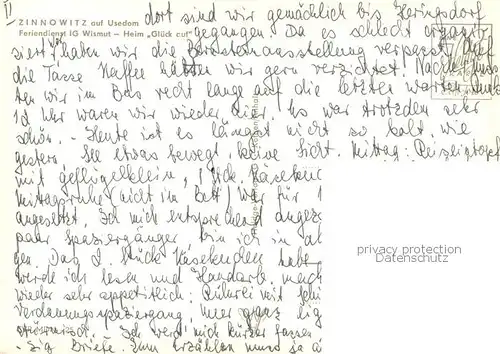 II)
ZINNOWITZ auf Usedom
Feriendienst IG Wismut – Heim „Glück auf“
dort sind wir gemächlich bis Heringsdorf
gegangen. Da es schlecht organi-
siert war, haben wir die Bernsteinausstellung verpasst. Auf
die Tasse Kaffee hätten wir gern verzichtet. Nachher muss-
ten wir im Bus recht lange auf die letzten warten. Aber
Uhr waren wir wieder hier. Es war trotzdem sehr
schön. - Heute ist es längst nicht so kalt, wie
gestern. See etwas bewegt, keine Sicht. Mittag: Reiseintopf
mit Geflügelklein, 1 Stck. Käsekuchen
Mittagsruhe (nicht im Bett) war für 1
angesetzt. Ich mich entsprechend angezo
paar Spaziergänger bin ich in
gen. Das 2. Stück Käsekuchen habe
werde ich lesen und Handarb. mach
wieder sehr appetitlich: Rührei mit
Verdauungsspaziergang, Meer ganz
Ich werd' mich kürzer fassen
Briefe. Zum Erzählen muss ja
privacy protection
Datenschutz